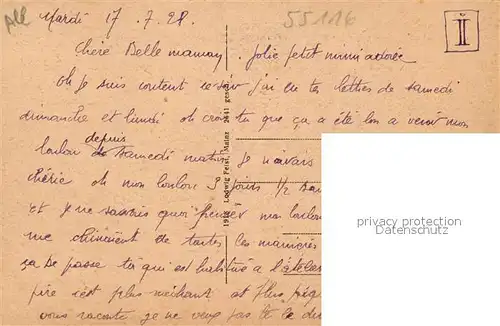 All
Mardi 17.7.28.
55116
II
Chéré Belle maman, Jolie petit mimi adorée
Oh je suis content ce soir j'ai eu tes lettres de samedi
dimanche et lundi oh crois tu que ça a été bon a venir mon
loulou depuis Samedi matin je n'avais
chérie oh mon loulou 3 jours 1/2 san
Et je ne savais quoi penser mon loulou
me chinoisent de toutes les manières
ça se passe toi qui est habitué a l'atelier
pire c'est plus méchant et plus
vous raconte je ne veux pas te le di
1918 Ludwig Feist, Mainz 2641 gesch.
privacy protection
Datenschutz